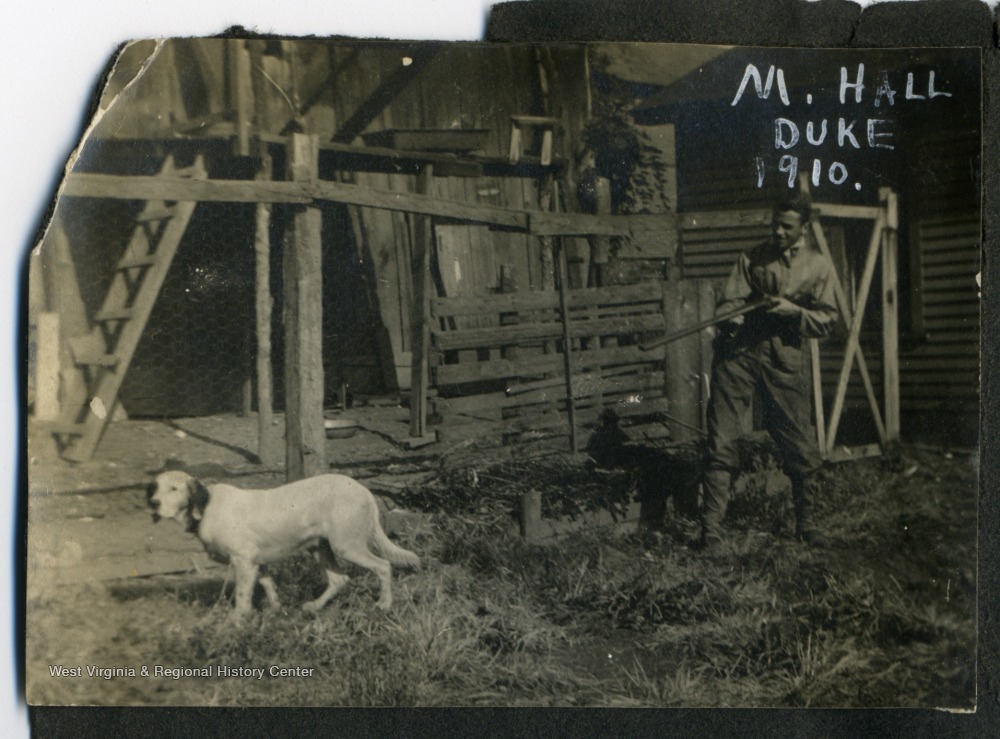 M. HALL
DUKE
1910.
West Virginia & Regional History Center